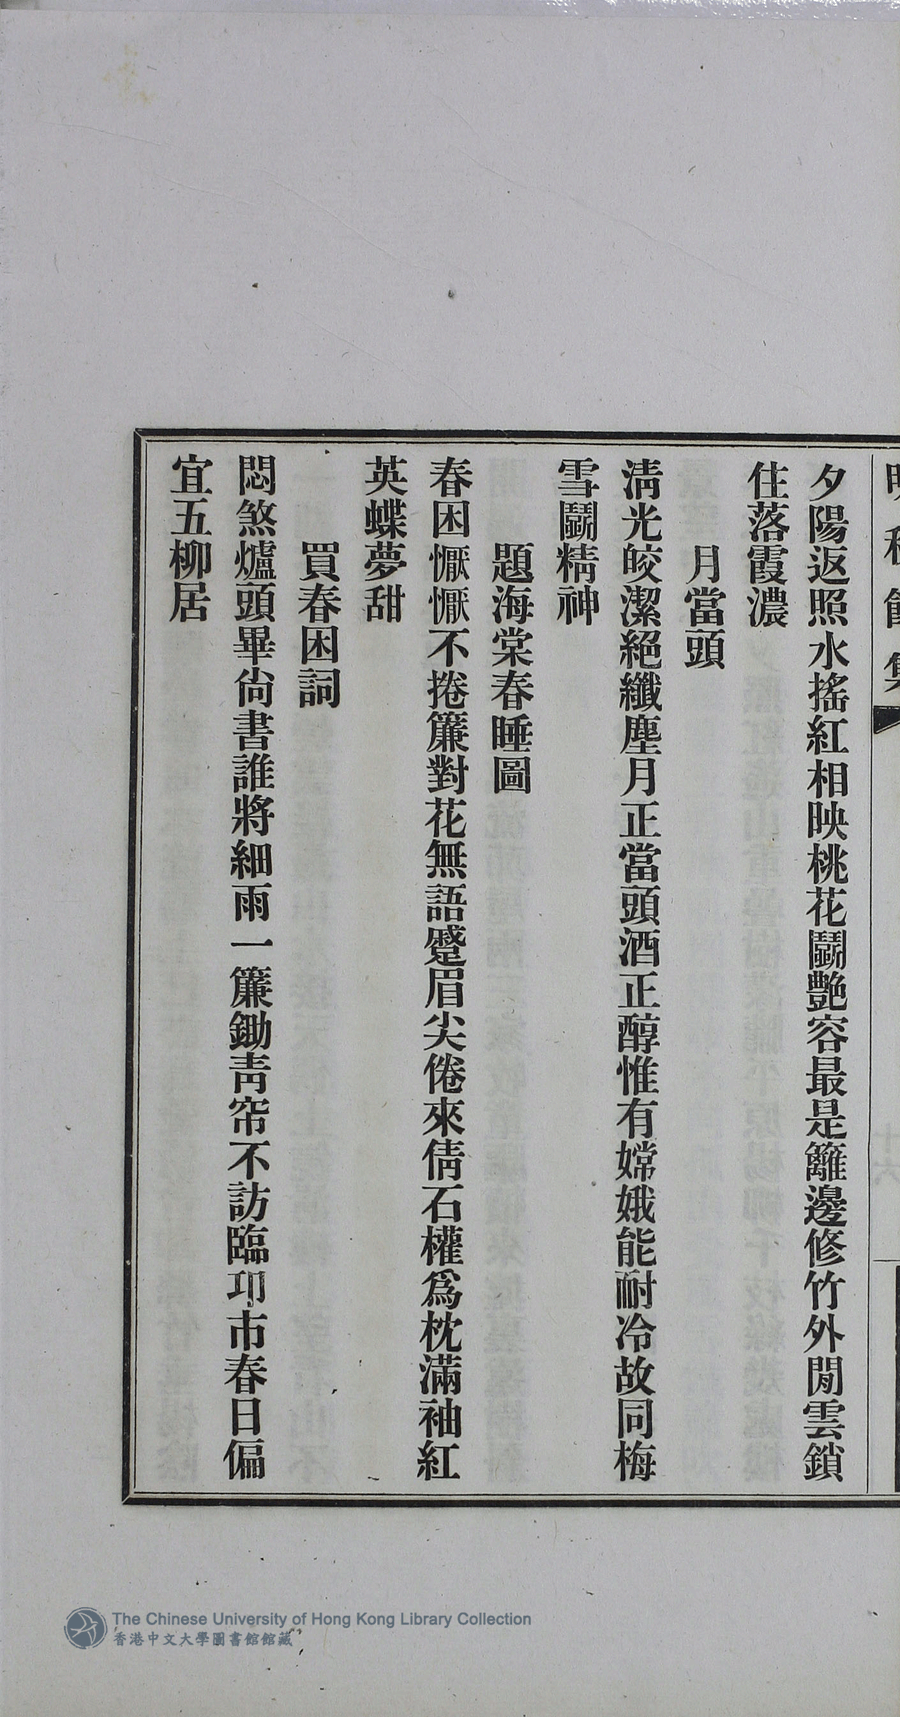 夕陽返照水搖紅相映桃花鬭艷容最是籬邊修竹外閒雲鎖
住落霞濃
月當頭
淸光皎潔絕纖塵月正當頭酒正醇惟有嫦娥能耐冷故同梅
雪鬭精神
題海棠春睡圖
春困懨懨不捲簾對花無語蹙眉尖倦來倩石權爲枕滿袖紅
英蝶夢甜
買春困詞
悶煞爐頭畢尙書誰將細雨一簾鋤靑帘不訪臨卭市春日偏
宜五柳居
The Chinese University of Hong Kong Library Collection
香港中文大學圖書館館藏